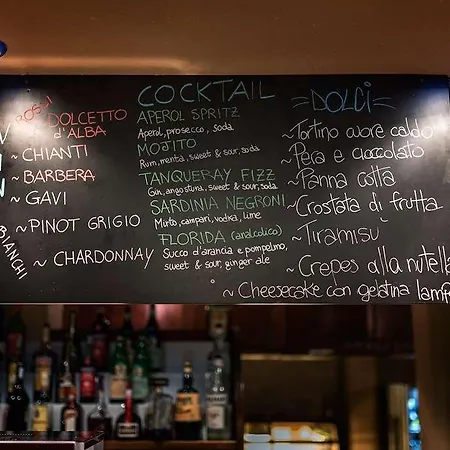 ROSSI
DOLCETTO
d'ALBA
~ CHIANTI
~ BARBERA
~ GAVI
~ PINOT GRIGIO
~ CHARDONNAY
BIANCHI
COCKTAIL
APEROL SPRITZ
Aperol, prosecco, soda
MOJITO
Rum, menta, sweet & sour, soda
TANQUERAY FIZZ
Gin, angostina, sweet & sour, soda
SARDINIA NEGRONI
Mirto, campari, vodka, lime
FLORIDA (analcolico)
Succo d'arancia e pompelmo,
sweet & sour, ginger ale
=DOLCI=
~Tortino cuore caldo
~Pera e cioccolato
~Panna cotta
~Crostata di frutta
~Tiramisu
~Crepes alla nutella
~Cheesecake con gelatina lamp